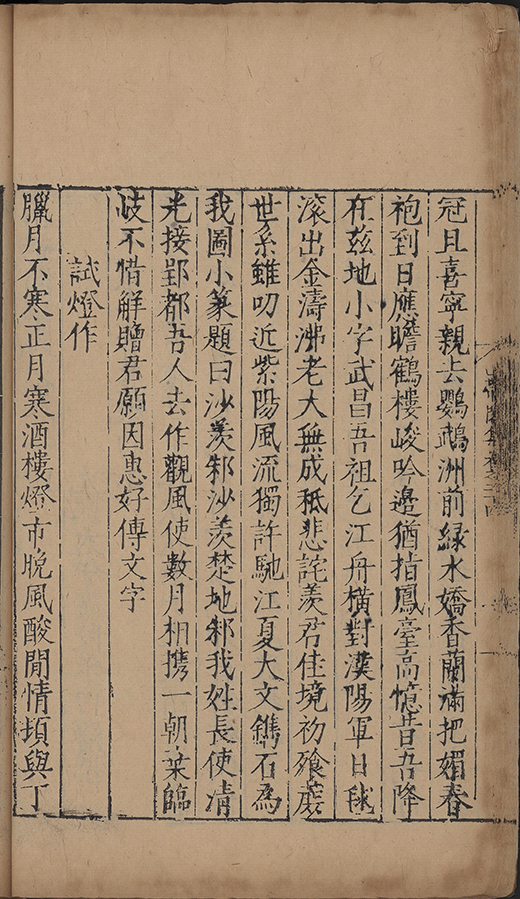 冠且喜寧親去鸚鵡洲前綠水嬌香蘭滿把媚春
袍到日應瞻鶴樓峻吟邊猶指鳳臺高憶昔吾降
在兹地小字武昌吾祖乞江舟橫對漢陽軍日毬
滾出金濤沸老大無成秪悲詫羡君佳境初飱蔗
世系雖叨近紫陽風流獨許馳江夏大文鐫石為
我圖小篆題曰沙羨邾沙羨楚地邾我姓長使清
光接郢都吾人去作觀風使數月相携一朝棄臨
岐不惜解贈君願因惠好傳文字
試燈作
臘月不寒正月寒酒樓燈市晚風酸閒情頻與丁